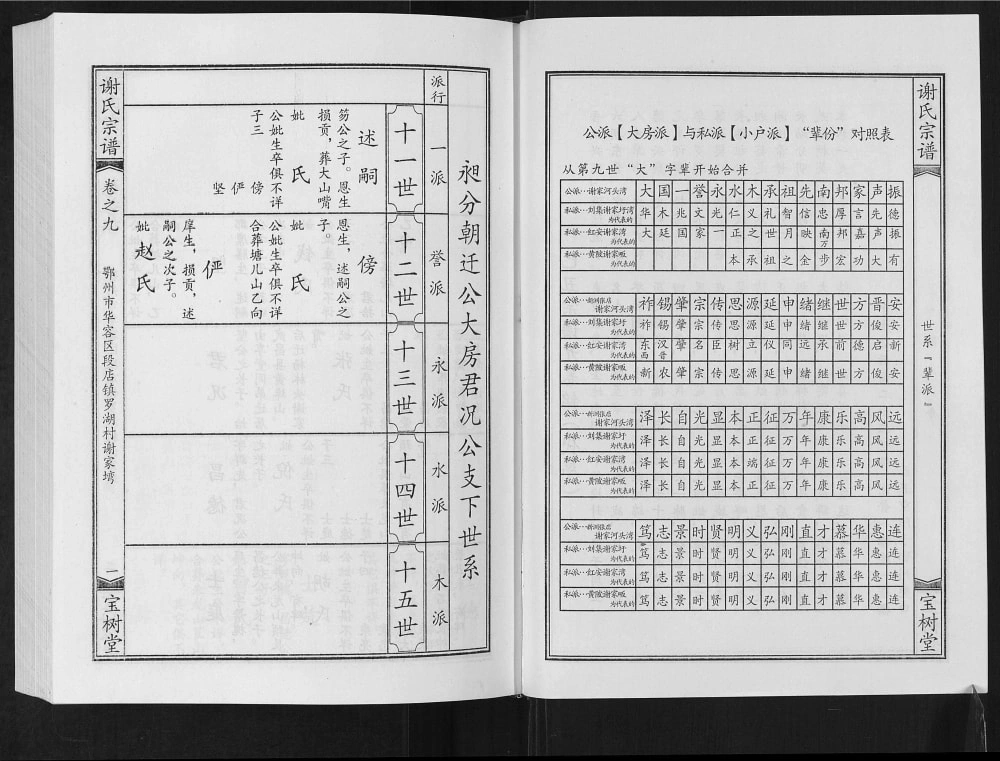 谢氏宗谱
世系『辈派』
宝树堂
公派【大房派】与私派【小户派】“辈份”对照表
从第九世“大”字辈开始合并
公派…谢家河头湾 大国一誉永水木承祖先南邦家声振
私派…刘集谢家圩湾为代表的 华木兆文光仁义礼智信忠厚言先德
私派…红安谢家湾为代表的 大廷国家一正之世月映南万邦嘉声振
私派…黄陂谢家畈为代表的 本承祖之金步宏功大有
公派…新洲张店谢家河头湾 祚锡肇宗传思源延申绪继世方晋安
私派…刘集谢家圩为代表的 祚锡肇宗传思源延申绪继世方俊安
私派…红安谢家湾为代表的 东西汉晋肇名臣树立仪同远承前德启新
私派…黄陂谢家畈为代表的 新农肇宗传思源延申绪继世方俊安
公派…新洲张店谢家河头湾 泽长自光显本正征万年康乐高风远
私派…刘集谢家圩为代表的 泽长自光显本正征万年康乐高风远
私派…红安谢家湾为代表的 泽长自光显本端征万年康乐高风远
私派…黄陂谢家畈为代表的 泽长自光显本正征万年康乐高风远
公派…新洲张店谢家河头湾 笃志景时贤明义弘刚直才慕华惠连
私派…刘集谢家圩为代表的 笃志景时贤明义弘刚直才慕华惠连
私派…红安谢家湾为代表的 笃志景时贤明义弘刚直才慕华惠连
私派…黄陂谢家畈为代表的 笃志景时贤明义弘刚直才慕华惠连
昶分朝迁公大房君况公支下世系
派行
一派
誉派
永派
水派
木派
十一世
十二世
十三世
十四世
十五世
述嗣
笏公之子。恩生
损贡，葬大山嘴
妣 氏
公妣生卒俱不详
子三
傍
俨
坚
傍
恩生，述嗣公之
子。
妣 氏
公妣生卒俱不详
合葬塘儿山乙向
俨
庠生，损贡，述
嗣公之次子。
妣 赵氏
谢氏宗谱
卷之九
鄂州市华容区段店镇罗湖村谢家塆
一
宝树堂